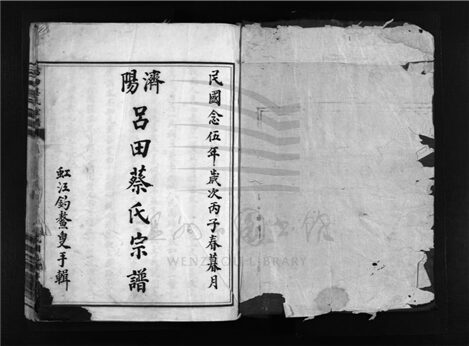 民國念伍年歲次丙子春暮月
濟陽
呂田蔡氏宗譜
虹汪鈎鰲叟手輯
WENZHOU LIBRARY